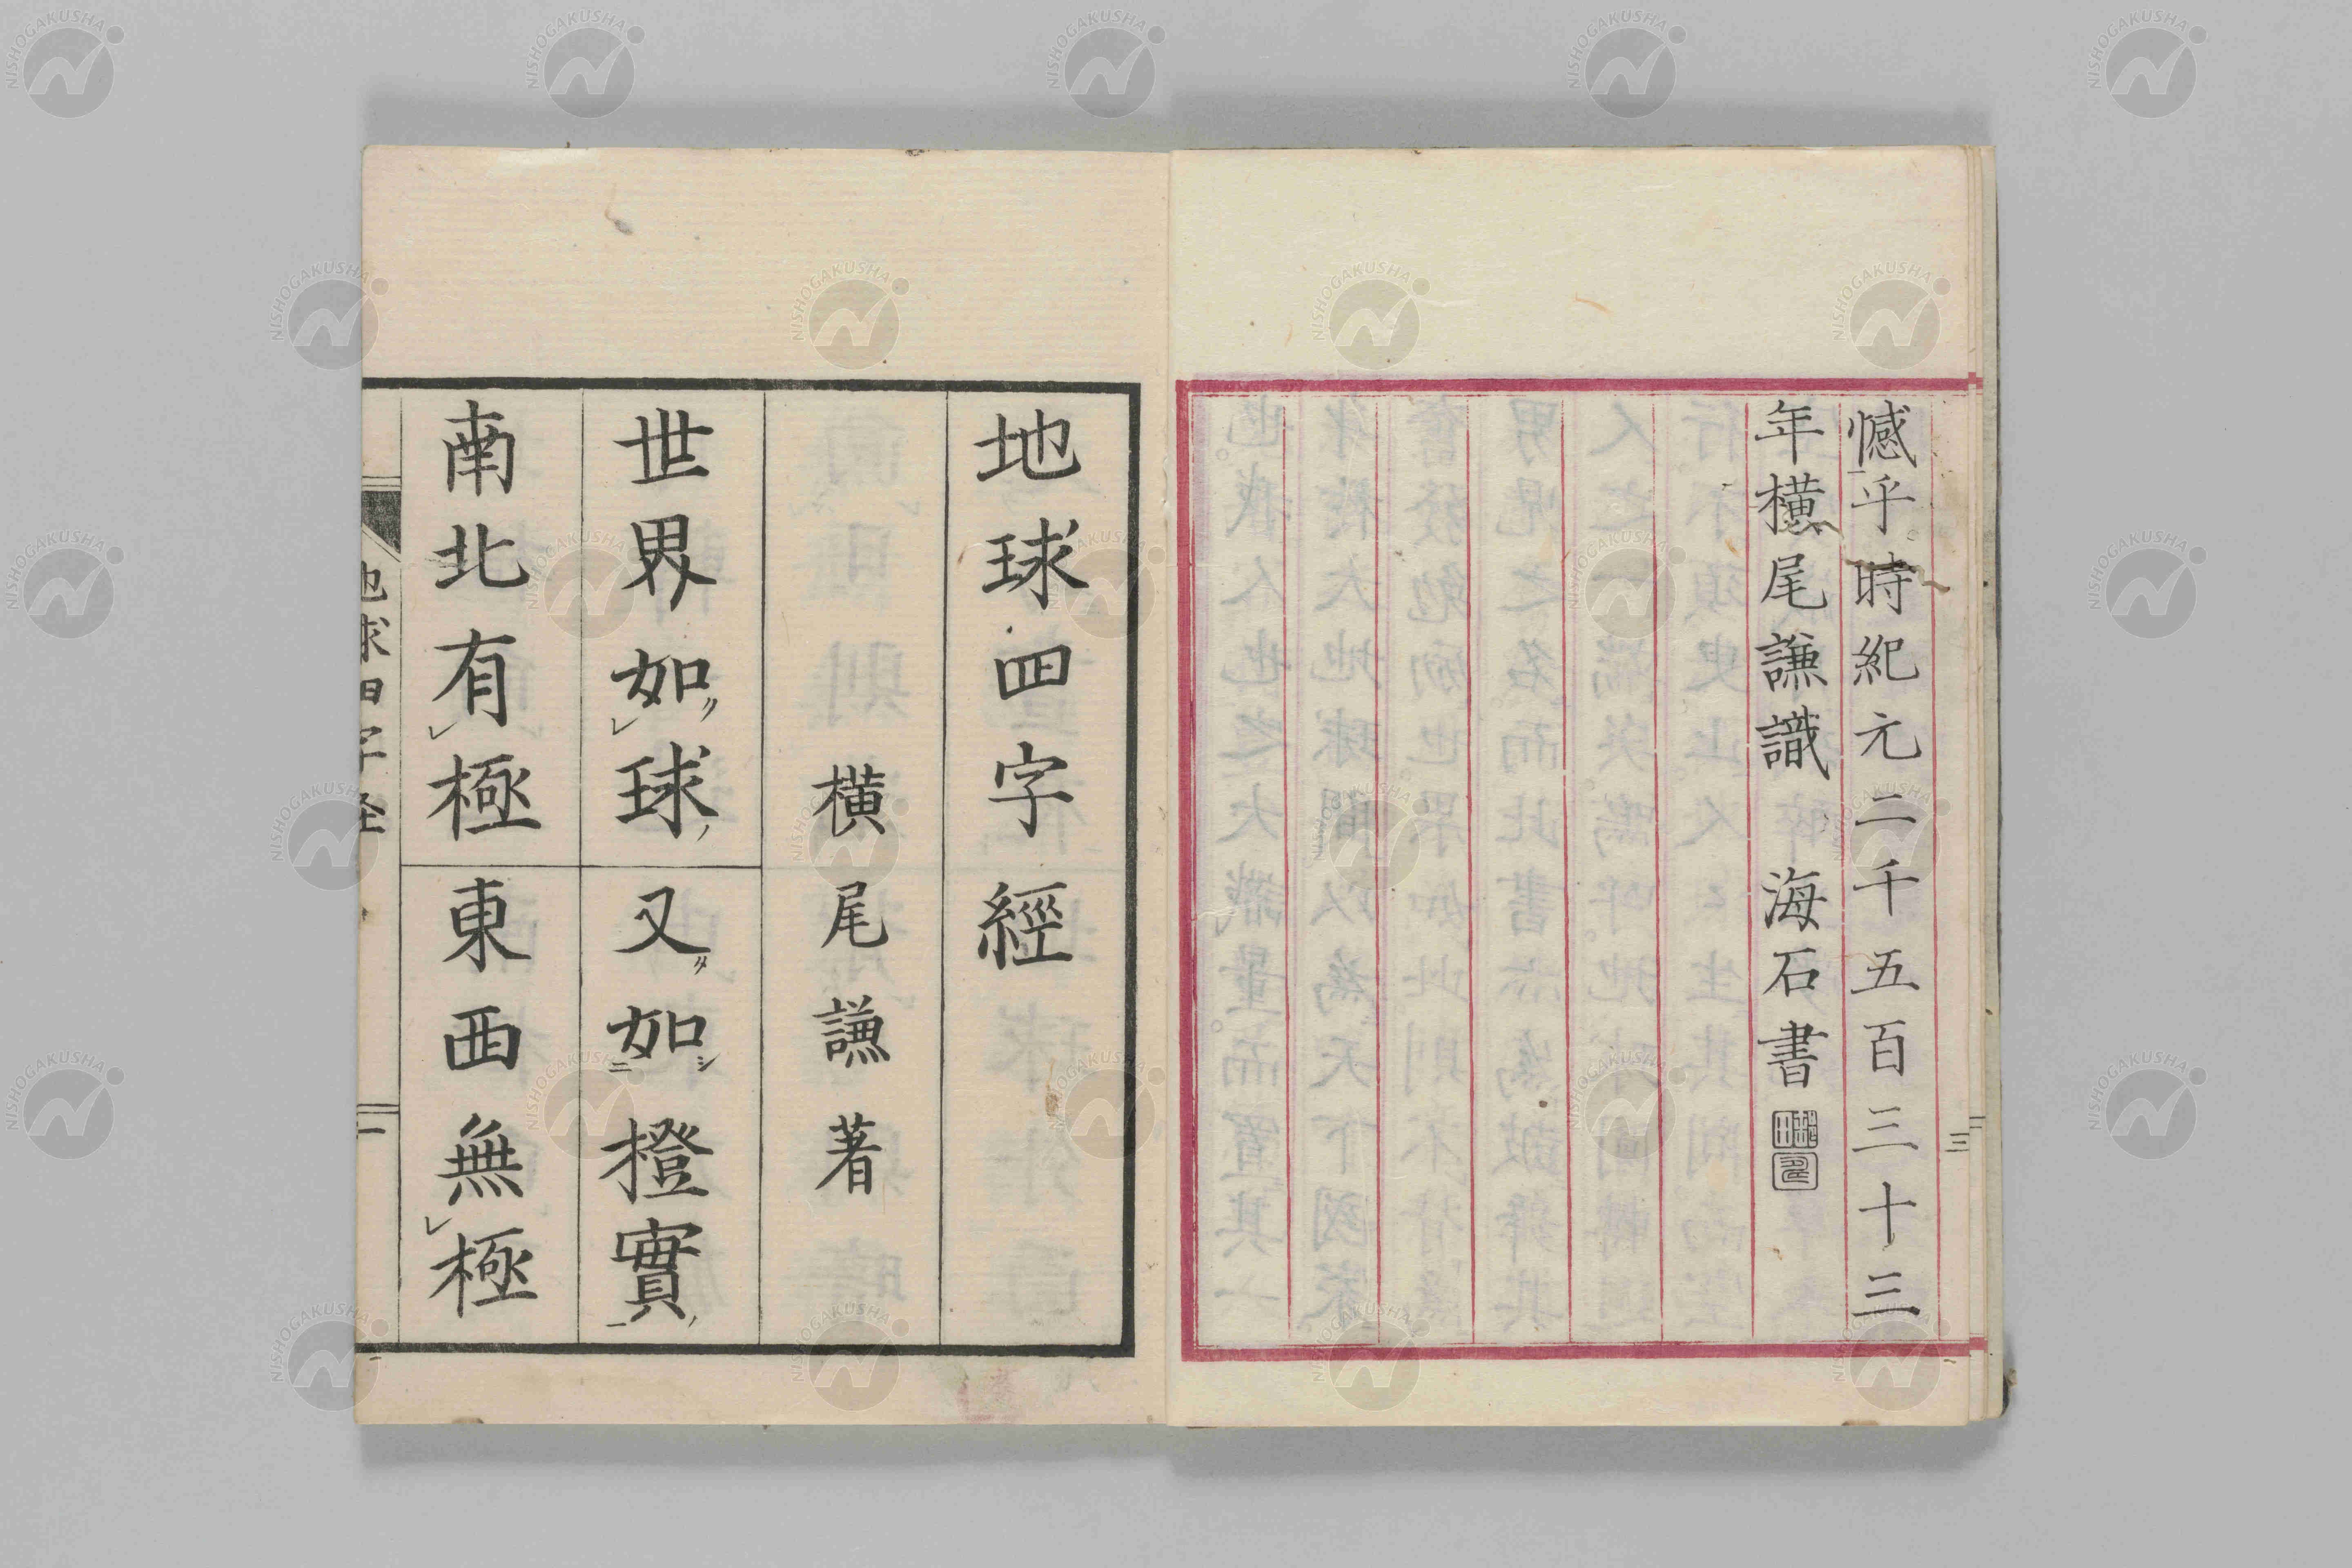 憾乎。時紀元二千五百三十三
年橫尾謙識 海石書
三
地球四字經
橫尾謙著
世界如〃レ球ノ又〃如シ二橙實ノ一
南北有レ極東西無レ極
地球四字經
一
NISHOGAKUSHA